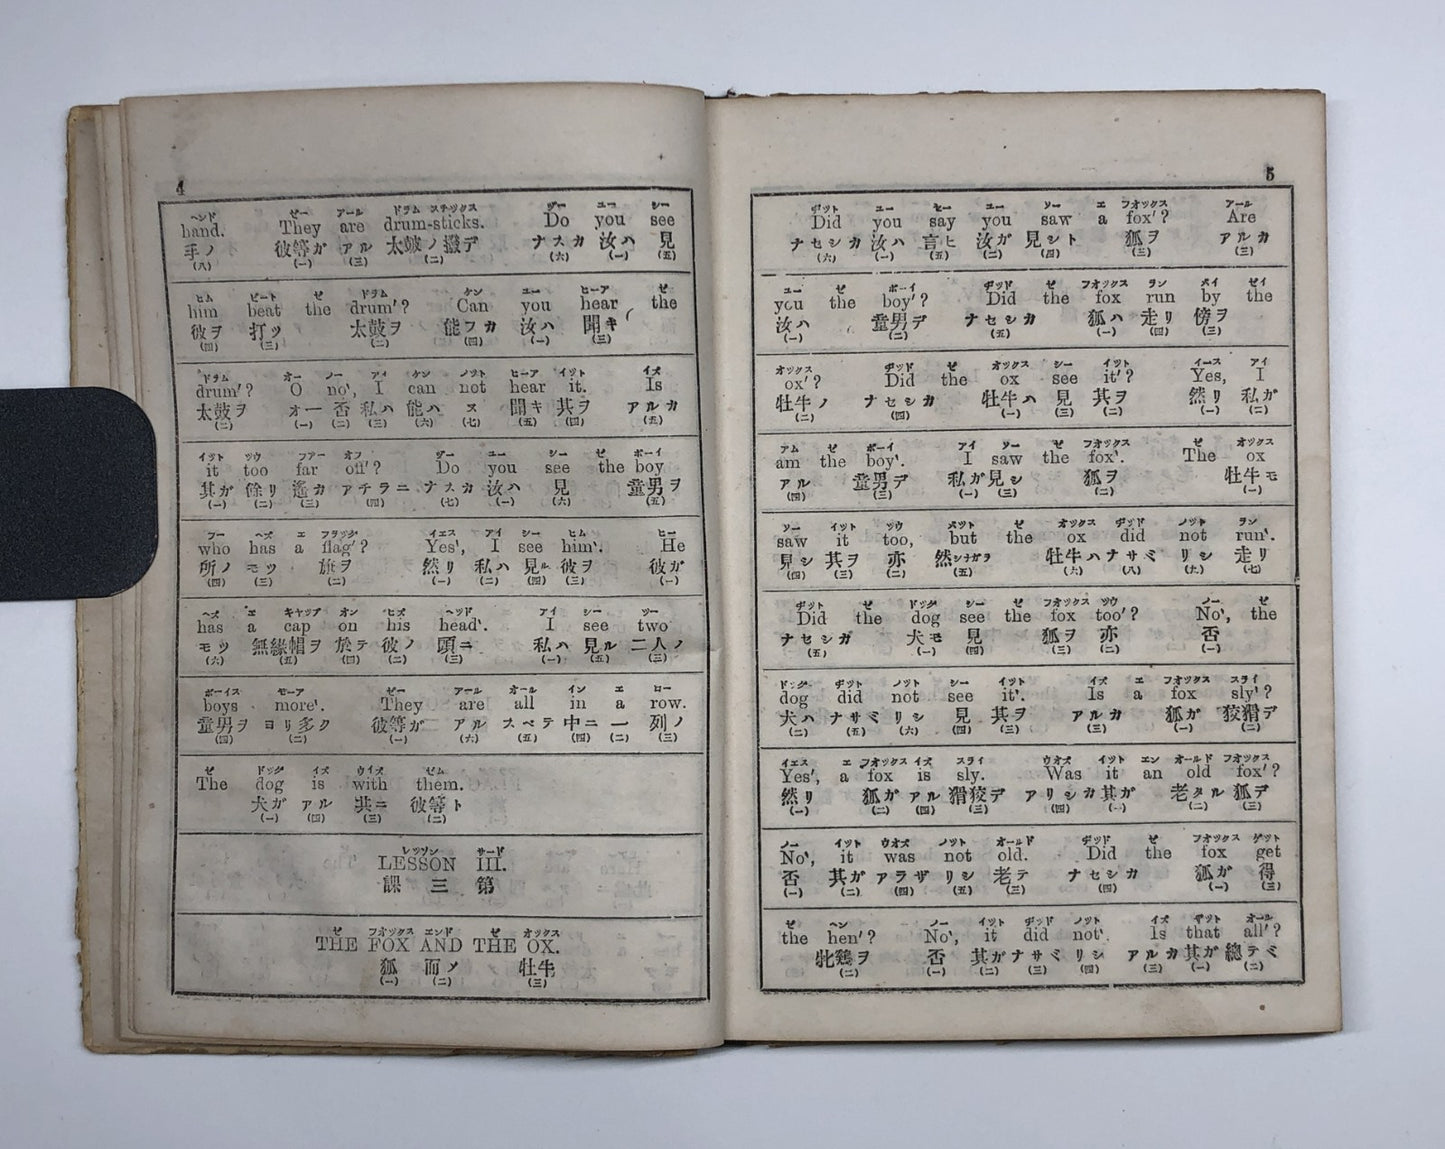 4
ヘンド ゼー アール ドラム スチックス ヅー ユー シー
hand. They are drum-sticks. Do you see
手ノ 彼等ガ アル 太皷ノ撥デ ナスカ 汝ハ 見
(八) (一) (三) (二) (六) (一) (五)
ヒム ビート ゼ ドラム ケン ユー ヒーア ゼ
him beat the drum'? Can you hear the
彼ヲ 打ツ 太鼓ヲ 能フカ 汝ハ 聞キ
(四) (三) (二) (四) (一) (三)
ドラム オー ノー アイ ケン ノット ヒーア イット イズ
drum'? O no', I can not hear it. Is
太鼓ヲ オー 否 私ハ 能ハ ヌ 聞キ 其ヲ アルカ
(二) (一) (二) (三) (六) (七) (五) (四) (五)
イット ツウ フアー オフ ヅー ユー シー ゼ ボーイ
it too far off'? Do you see the boy
其ガ 餘リ 遙カ アチラニ ナスカ 汝ハ 見 童男ヲ
(一) (二) (三) (四) (七) (一) (六) (五)
フー ヘズ エ フラッグ イエス アイ シー ヒム ヒー
who has a flag'? Yes', I see him'. He
所ノ モツ 旗ヲ 然リ 私ハ 見ル 彼ヲ 彼ガ
(四) (三) (二) (一) (二) (四) (三) (一)
ヘズ エ キャップ オン ヒズ ヘッド アイ シー ツー
has a cap on his head'. I see two
モツ 無緣帽ヲ 於テ 彼ノ 頭ニ 私ハ 見ル 二人ノ
(六) (五) (四) (二) (三) (一) (五) (三)
ボーイス モーア ゼー アール オール イン エ ロー
boys more'. They are all in a row.
童男ヲ ヨリ多ク 彼等ガ アル スベテ 中ニ 一 列ノ
(四) (二) (一) (六) (五) (四) (二) (三)
ゼ ドッグ イズ ウイズ ゼム
The dog is with them.
犬ガ アル 共ニ 彼等ト
(一) (四) (三) (二)
レッソン サード
LESSON III.
課 三 第
ゼ フオックス エンド ゼ オックス
THE FOX AND THE OX.
狐 而ノ 牡牛
(一) (二) (三)
5
ヂット ユー セー ユー ソー エ フオックス アール
Did you say you saw a fox'? Are
ナセシカ 汝ハ 言ヒ 汝ガ 見シト 狐ヲ アルカ
(六) (一) (五) (二) (四) (三) (三)
ユー ゼ ボーイ ヂッド ゼ フオックス ラン バイ ゼイ
you the boy'? Did the fox run by the
汝ハ 童男デ ナセシカ 狐ハ 走リ 傍ヲ
(一) (二) (五) (一) (四) (三)
オックス ヂッド ゼ オックス シー イット イース アイ
ox'? Did the ox see it'? Yes, I
牡牛ノ ナセシカ 牡牛ハ 見 其ヲ 然リ 私ガ
(二) (四) (一) (三) (二) (一) (二)
アム ゼ ボーイ アイ ソー ゼ フオックス ゼ オックス
am the boy'. I saw the fox'. The ox
アル 童男デ 私ガ 見シ 狐ヲ 牡牛モ
(四) (三) (一) (三) (二) (一)
ソー イット ツウ バット ゼ オックス ヂッド ノット ラン
saw it too, but the ox did not run'.
見シ 其ヲ 亦 然シナガラ 牡牛ハ ナサミ リシ 走リ
(四) (三) (二) (五) (六) (八) (九) (七)
ヂット ゼ ドッグ シー ゼ フオックス ツウ ノー
Did the dog see the fox too'? No', the
ナセシガ 犬モ 見 狐ヲ 亦 否
(五) (一) (四) (三) (二) (一)
ドッグ ヂット ノット シー イット イズ エ フオックス スライ
dog did not see it'. Is a fox sly'?
犬ハ ナサミ リシ 見 其ヲ アルカ 狐ガ 狡猾デ
(二) (五) (六) (四) (三) (三) (一) (二)
イエス エ フオックス イズ スライ ウオズ イット エン オールド フオックス
Yes', a fox is sly. Was it an old fox'?
然リ 狐ガ アル 猾狡デ アリシカ 其ガ 老タル 狐デ
(一) (二) (四) (三) (四) (一) (二) (三)
ノー イット ウオズ ノット オールド ヂッド ゼ フオックス ゲット
No', it was not old. Did the fox get
否 其ガ アラザ リシ 老テ ナセシカ 狐ガ 得
(一) (二) (四) (五) (三) (四) (一) (三)
ゼ ヘン ノー イット ヂッド ノット イズ ザット オール
the hen'? No', it did not'. Is that all'?
牝鷄ヲ 否 其ガ ナサミ リシ アルカ 其ガ 總テミ
(二) (一) (二) (三) (四) (三) (一) (二)